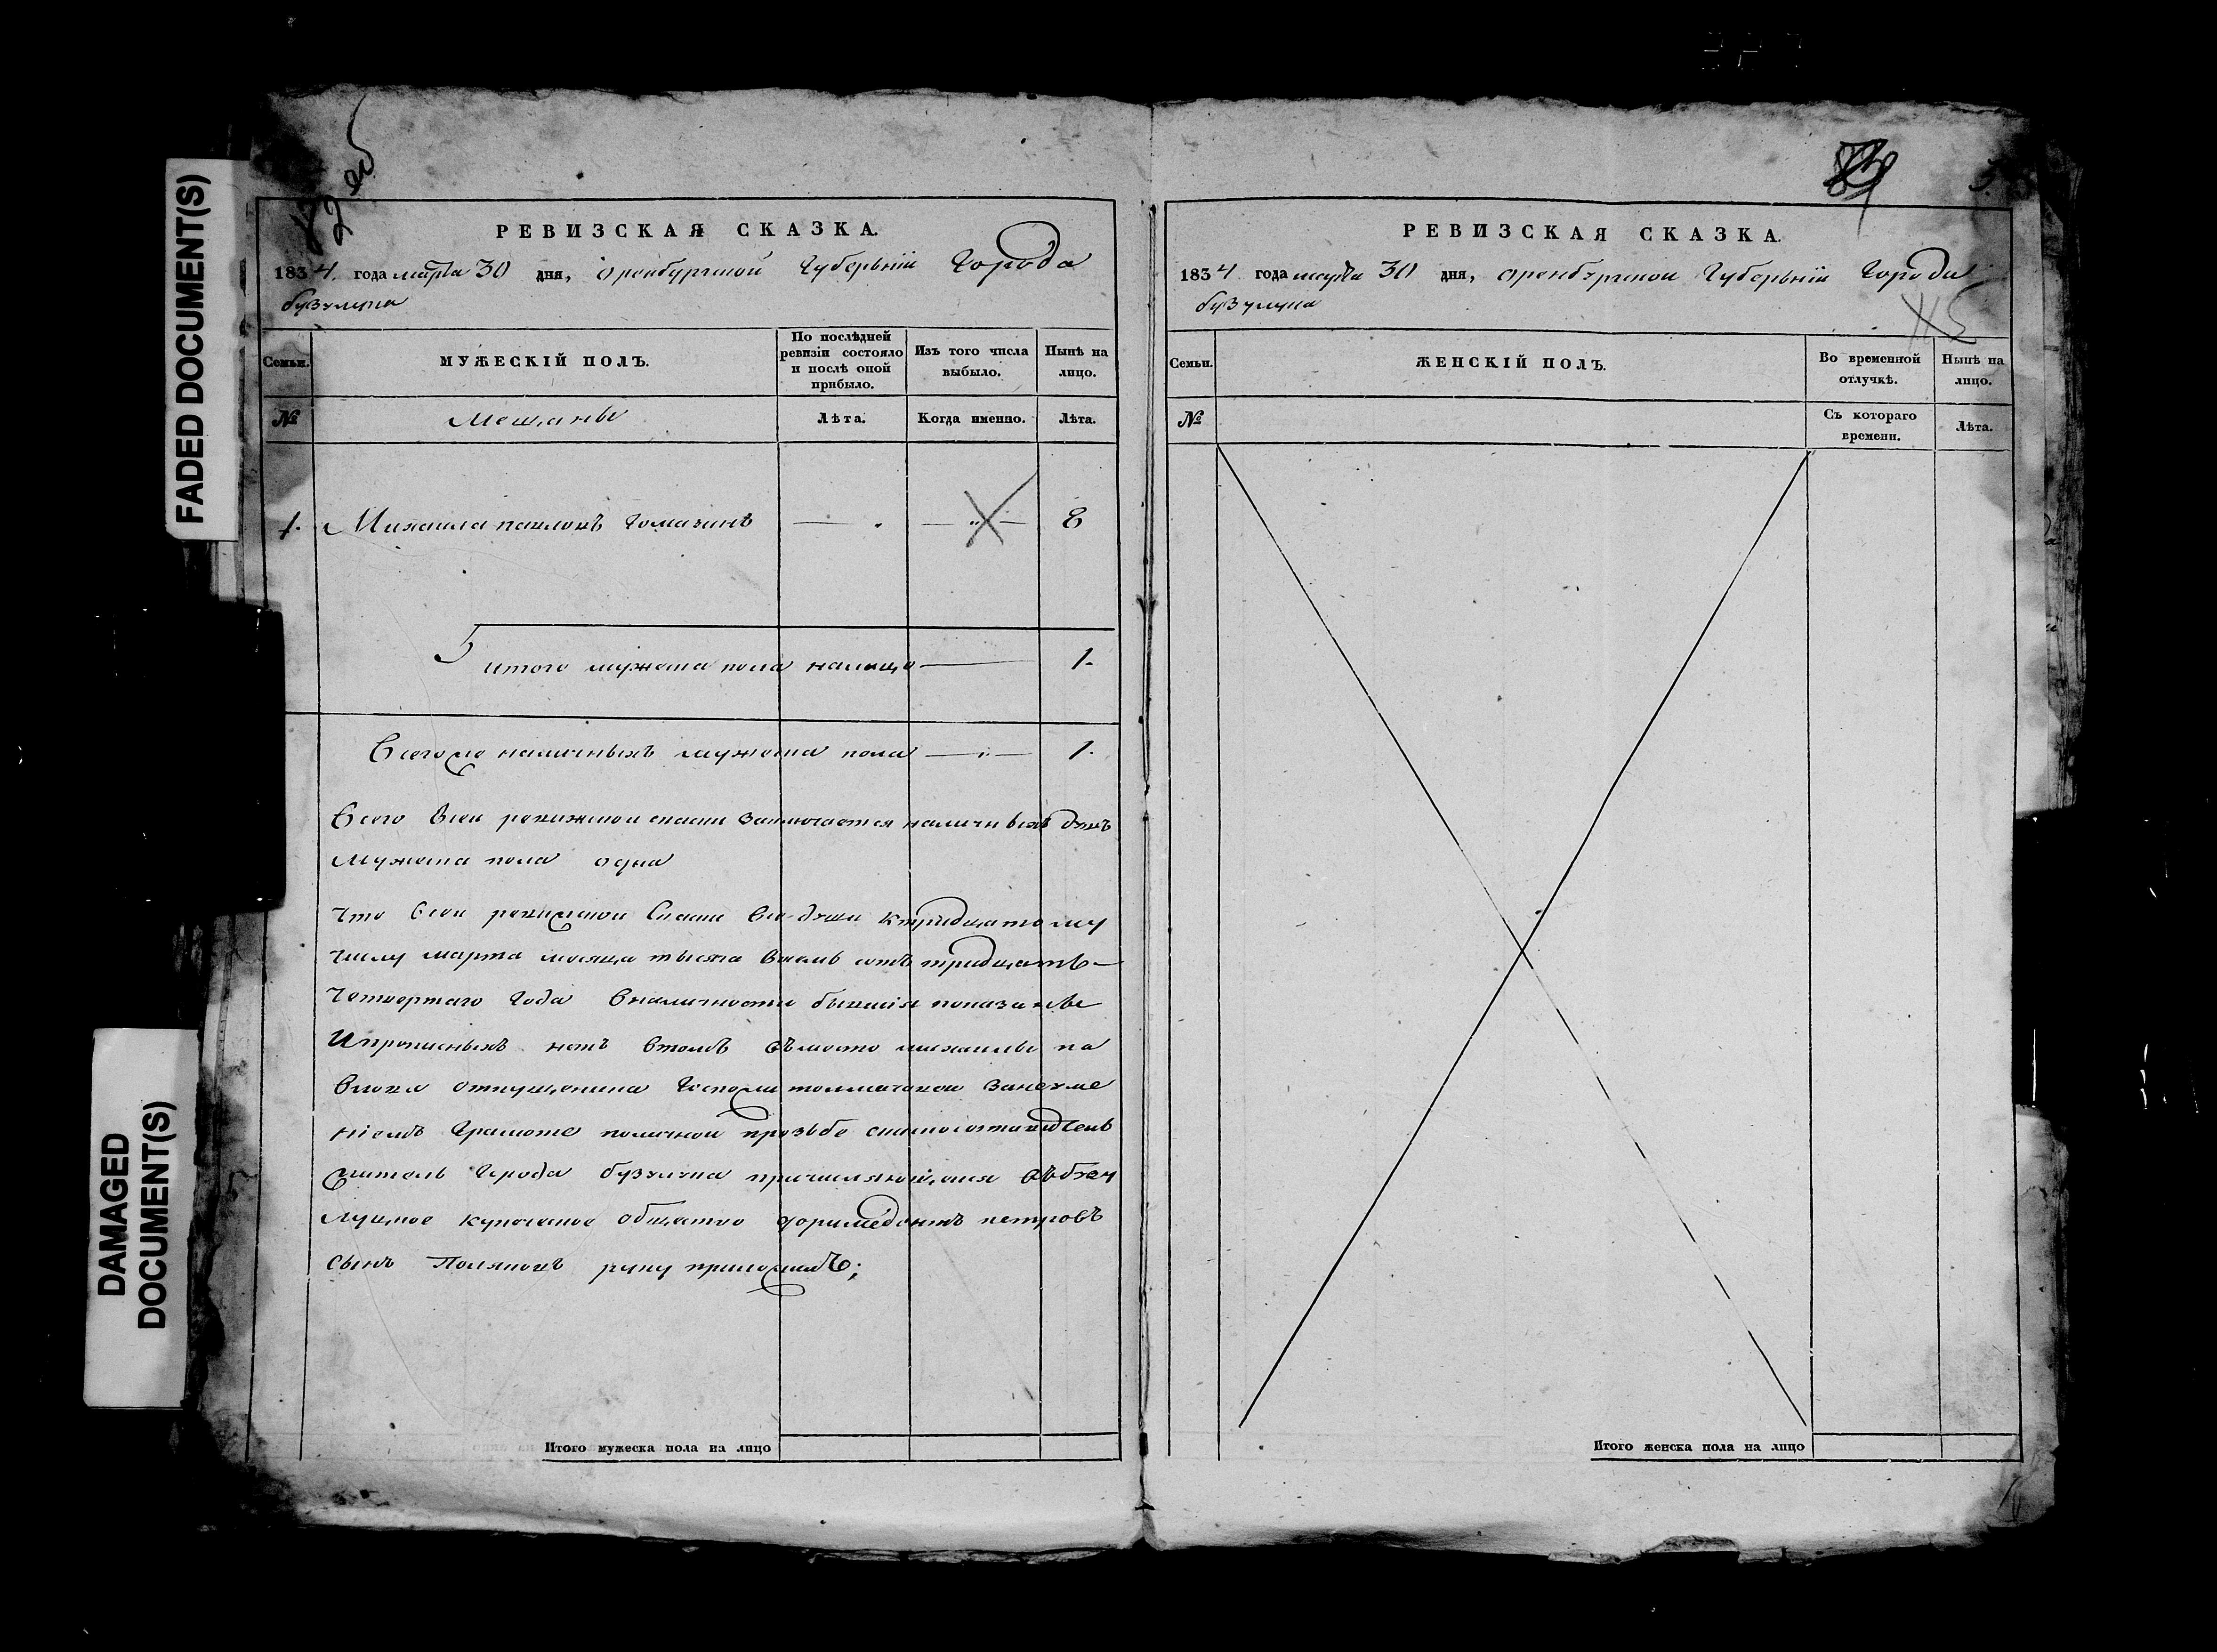 FADED DOCUMENT(S)
DAMAGED
DOCUMENT(S)
РЕВИЗСКАЯ СКАЗКА.
1834. года марта 30 дня, Оренбургской Губерьнiи Города
бузулука
Семьи.
МУЖЕСКIЙ ПОЛЪ.
По послѣдней
ревизiи состояло
и послѣ оной
прибыло.
Изъ того числа
выбыло.
Нынѣ на
лицо.
№
Мещаны
Лѣта.
Когда именно.
Лѣта.
1. Михаила павловъ 8
итого мужеска пола налицо 1.
Всегоже наличныхъ мужеска пола 1.
Всего всеи ревижской скаски заключается наличныхъ душъ
Мужеска пола одна
что всеи ревижской Скаске все души ктридцатому
числу марта месяца тысяча восемь сотъ тридцать
четвертаго Года вналичности бывшiя показаны
Ипрописныхъ нетъ втомъ въместо михаилы па
влова отпущеника Госпожи занеуме
нiемъ Грамоте поличной прозьбе
житель Города бузулука
купеческое общество петровъ
сынъ Поляковъ руку приложилъ;
Итого мужеска пола на лицо
РЕВИЗСКАЯ СКАЗКА.
1834 года марта 30 дня, оренбургской Губерьнiи Города
бузулука
Семьи.
ЖЕНСКIЙ ПОЛЪ.
Во временной
отлучкѣ.
Нынѣ на
лицо.
№
Съ котораго
времени.
Лѣта.
Итого женска пола на лицо